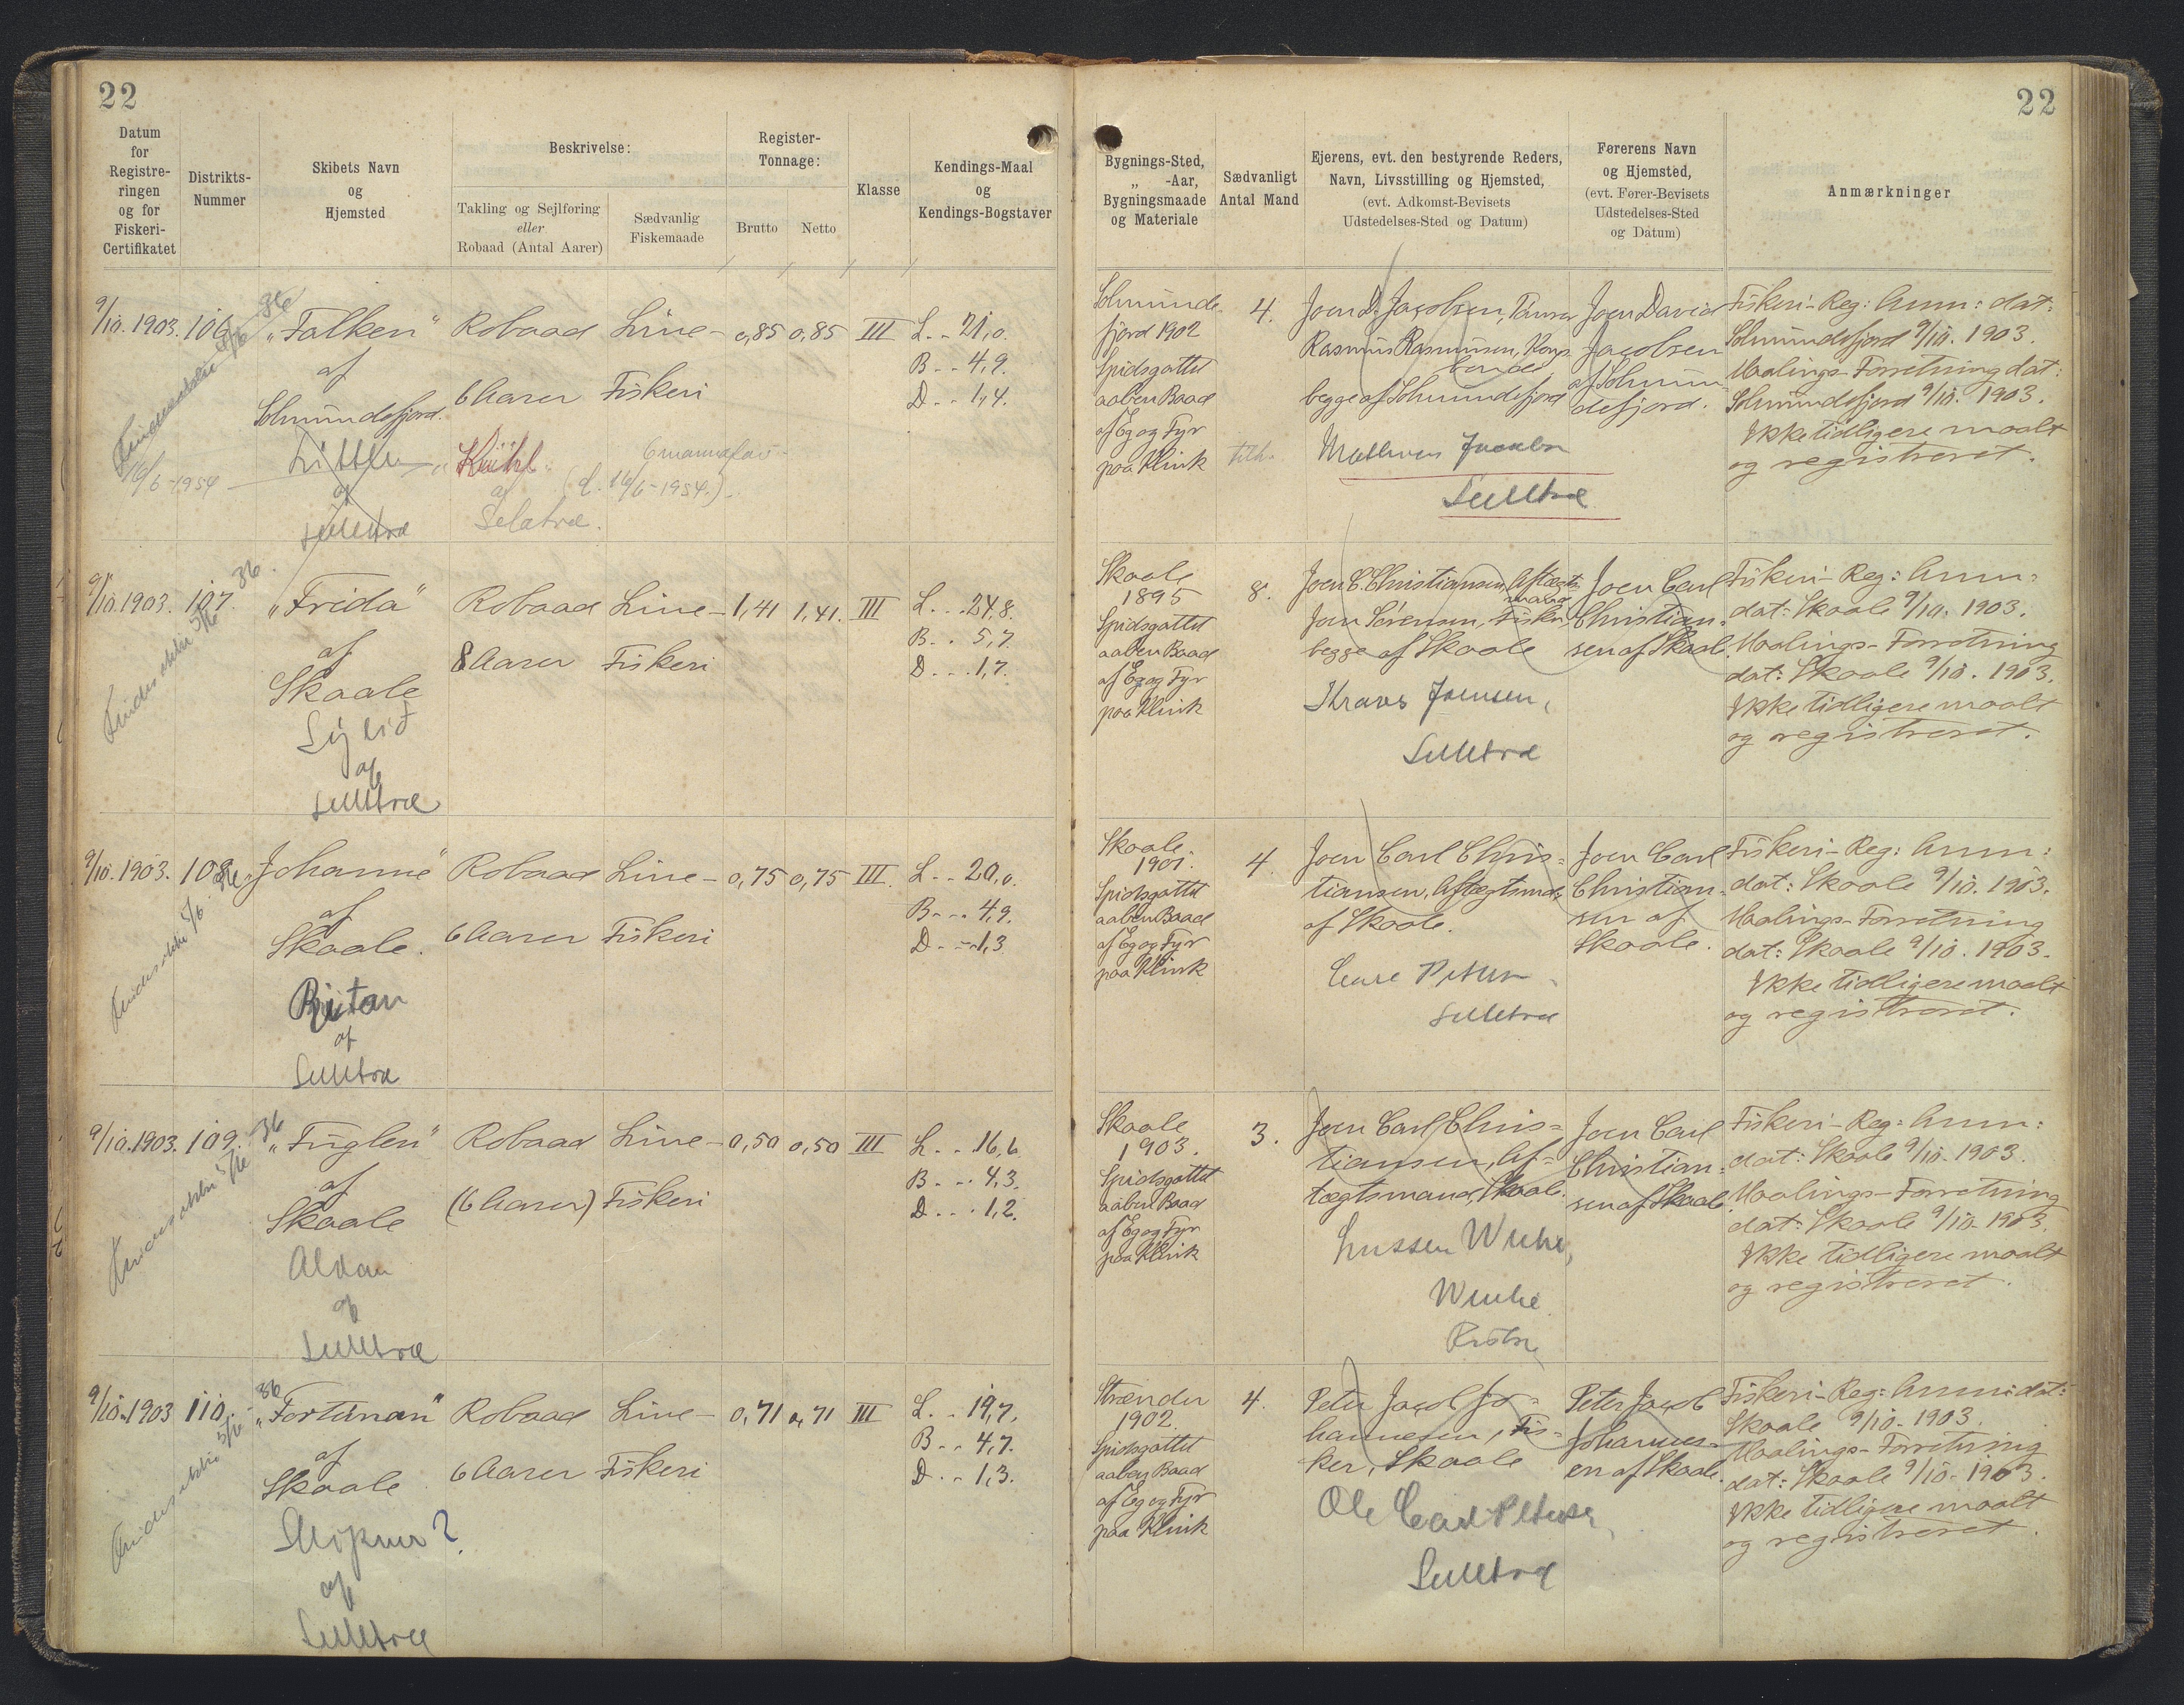 22
22
Datum
for
Registre-
ringen
og for
Fiskeri-
Certifikatet
Distrikts-
Nummer
Skibets Navn
og
Hjemsted
Beskrivelse:
Takling og Sejlføring
eller
Robaad (Antal Aarer)
Sædvanlig
Fiskemaade
Register-
Tonnage:
Brutto
Netto
Klasse
Kendings-Maal
og
Kendings-Bogstaver
Bygnings-Sted,
„ -Aar,
Bygningsmaade
og Materiale
Sædvanligt
Antal Mand
Ejerens, evt. den bestyrende Reders,
Navn, Livsstilling og Hjemsted,
(evt. Adkomst-Bevisets
Udstedelses-Sted og Datum)
Førerens Navn
og Hjemsted,
(evt. Fører-Bevisets
Udstedelses-Sted
og Datum)
Anmærkninger
9/10. 1903. 106
Findes ikke 5/6 36
16/6-1954
„Falken“
af
Solmundefjord.
af
Selletræ
Robaad
6 Aarer
af
Seletræ.
Line-
Fiskeri
6mannafar
(d. 16/6-1954.)
0,85 0,85 III
L. - 21,0.
B. - 4,9.
D. - 1,4.
Solmunde-
fjord 1902
Spidsgattet
aaben Baad
af Eg og Fyr
paa Klink
4.
Joen D. Jacobsen,
Rasmus Rasmussen, Kongs-
bonde,
begge af Solmundefjord
Selletræ
Joen David
Jacobsen
af Solmun-
defjord.
Fiskeri-Reg: Anm: dat:
Solmundefjord 9/10. 1903.
Maalings-Forretning dat:
Solmundefjord 9/10. 1903.
Ikke tidligere maalt
og registreret.
9/10. 1903. 107.
Findes ikke 5/6 36.
„Frida“
af
Skaale
af
Selletræ
Robaad
8 Aarer
Line-
Fiskeri
1,41 1,41. III
L. . . 24,8.
B. . 5,7.
D. . . 1,7.
Skaale
1895
Spidsgattet
aaben Baad
af Eg og Fyr
paa Klink
8.
Joen C. Christiansen, Aftægts-
mand
Joen Sørensen, Fisker,
begge af Skaale
Joensen,
Selletræ
Joen Carl
Christian-
sen af Skaale.
Fiskeri-Reg: Anm:
dat: Skaale 9/10. 1903.
Maalings-Forretning
dat: Skaale 9/10. 1903.
Ikke tidligere maalt
og registreret.
9/10. 1903. 108.
Findes ikke 5/6 36
„Johanne“
af
Skaale.
af
Selletræ
Robaad
6 Aarer
Line-
Fiskeri
0,75 0,75 III.
L. - - 20,0.
B. - - 4,9.
D. - - 1,3
Skaale.
1901.
Spidsgattet
aaben Baad
af Eg og Fyr
paa Klink
4.
Joen Carl Chris=
tiansen, Aftægtsmd.
af Skaale.
Selletræ
Joen Carl
Christian-
sen af
Skaale.
Fiskeri-Reg: Anm:
dat: Skaale 9/10. 1903.
Maalings-Forretning
dat: Skaale 9/10. 1903.
Ikke tidligere maalt
og registreret.
9/10. 1903. 109.
Findes ikke 5/6 36
„Fuglen“
af
Skaale
Aldan
af
Selletræ
Robaad
(6 Aarer)
Line-
Fiskeri
0,50 0,50 III
L. . . 16,6.
B. . . 4,3.
D. . . 1,2.
Skaale
1903.
Spidsgattet
aaben Baad
af Eg og Fyr
paa Klink
3.
Joen Carl Chris=
tiansen, Af=
tægtsmand, Skaale.
Joen Carl
Christian=
sen af Skaale.
Fiskeri-Reg: Anm:
dat: Skaale 9/10. 1903.
Maalings-Forretning
dat: Skaale 9/10. 1903.
Ikke tidligere maalt
og registreret.
9/10. 1903 110.
Findes ikke 5/6 36
„Fortunan“
af
Skaale.
af
Selletræ
Robaad
6 Aarer
Line-
Fiskeri
0,71 0,71 III
L. . 19,7.
B. . . 4,7.
D. . . 1,3.
Strænder
1902.
Spidsgattet
aaben Baad
af Eg og Fyr
paa Klink
4.
Peter Jacob Jo=
hannesen, Fis=
ker, Skaale
Ole Carl Petersen,
Selletræ
Peter Jacob
Johannes=
en af Skaale.
Fiskeri-Reg: Anm: dat:
Skaale 9/10. 1903.
Maalings-Forretning
dat: Skaale 9/10. 1903.
Ikke tidligere maalt
og registreret.